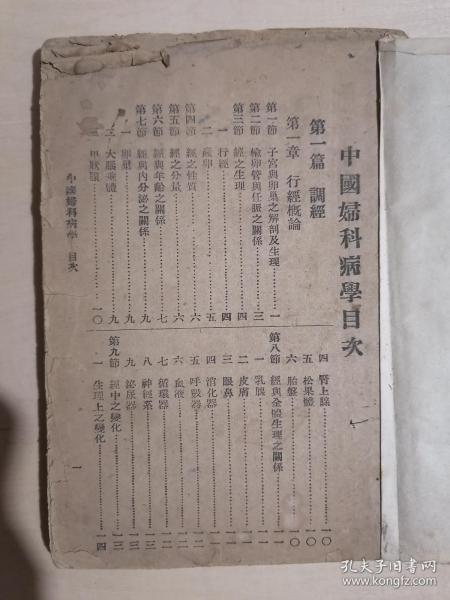 中國婦科病學目次
第一篇　調經
第一章　行經概論
第一節　子宮與卵巢之解剖及生理…………一
第二節　輸卵管與任脈之關係…………三
第三節　經之生理…………四
一　行經…………四
二　產卵…………五
第四節　經之性質…………六
第五節　經之分量…………六
第六節　經與年齡之關係…………七
第七節　經與內分泌之關係…………九
一　卵巢…………九
二　大腦垂體…………九
三　甲狀腺…………一〇
四　腎上腺…………一〇
五　松果體…………一〇
六　胎盤…………一〇
第八節　經與全體生理之關係…………一一
一　乳腺…………一一
二　皮膚…………一一
三　眼鼻…………一一
四　消化器…………一一
五　呼吸器…………一二
六　血液…………一二
七　循環器…………一二
八　神經系…………一三
九　泌尿器…………一三
第九節　經中之變化…………一三
一　生理上之變化…………一四
中國婦科病學　目次
一
孔夫子旧书网
www.kongfz.com